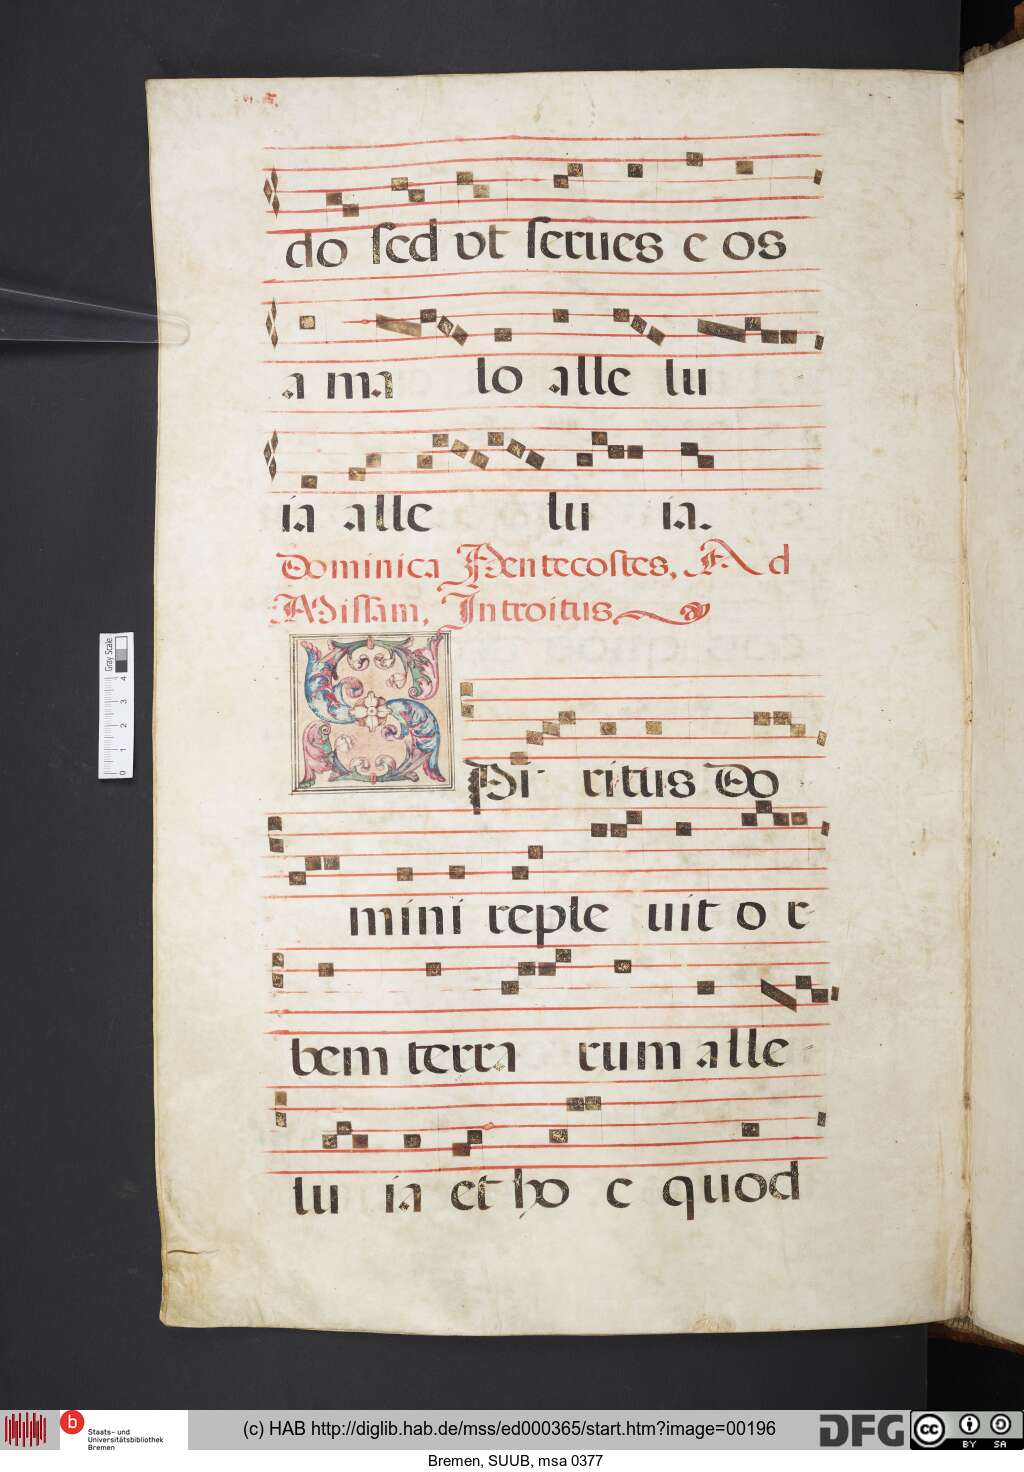 do sed vt serues e os
a ma lo alle lu
ia alle lu ia.
Dominica Pentecostes, Ad
Missam, Introitus
SPi ritus Do
mini reple uit o r-
bem terra rum alle-
lu ia et ho c quod
Gray Scale
0 1 2 3 4
b Staats- und
Universitätsbibliothek
Bremen
(c) HAB http://diglib.hab.de/mss/ed000365/start.htm?image=00196
DFG
cc BY SA
Bremen, SUUB, msa 0377